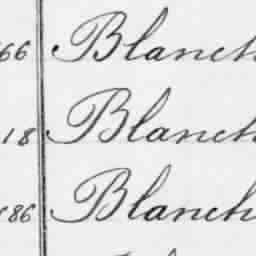 66 Blanch
18 Blanch
186 Blanch